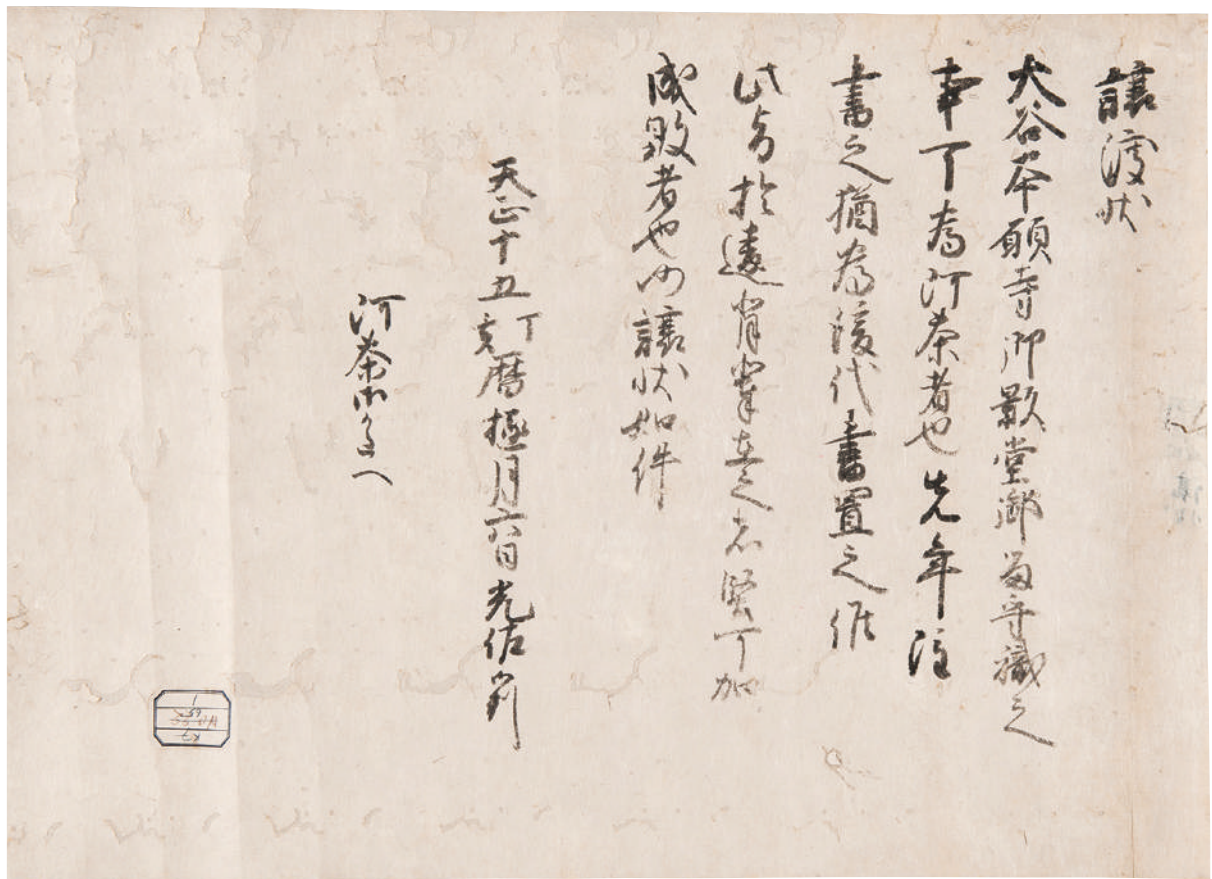 譲渡状
大谷本願寺御影堂御留守職之
事可為阿茶者也先年注
書之猶為後代書置之候
此旨於違背輩在之者堅可加
成敗者也仍譲状如件
天正十五丁亥暦極月六日光佐判
阿茶御かたへ